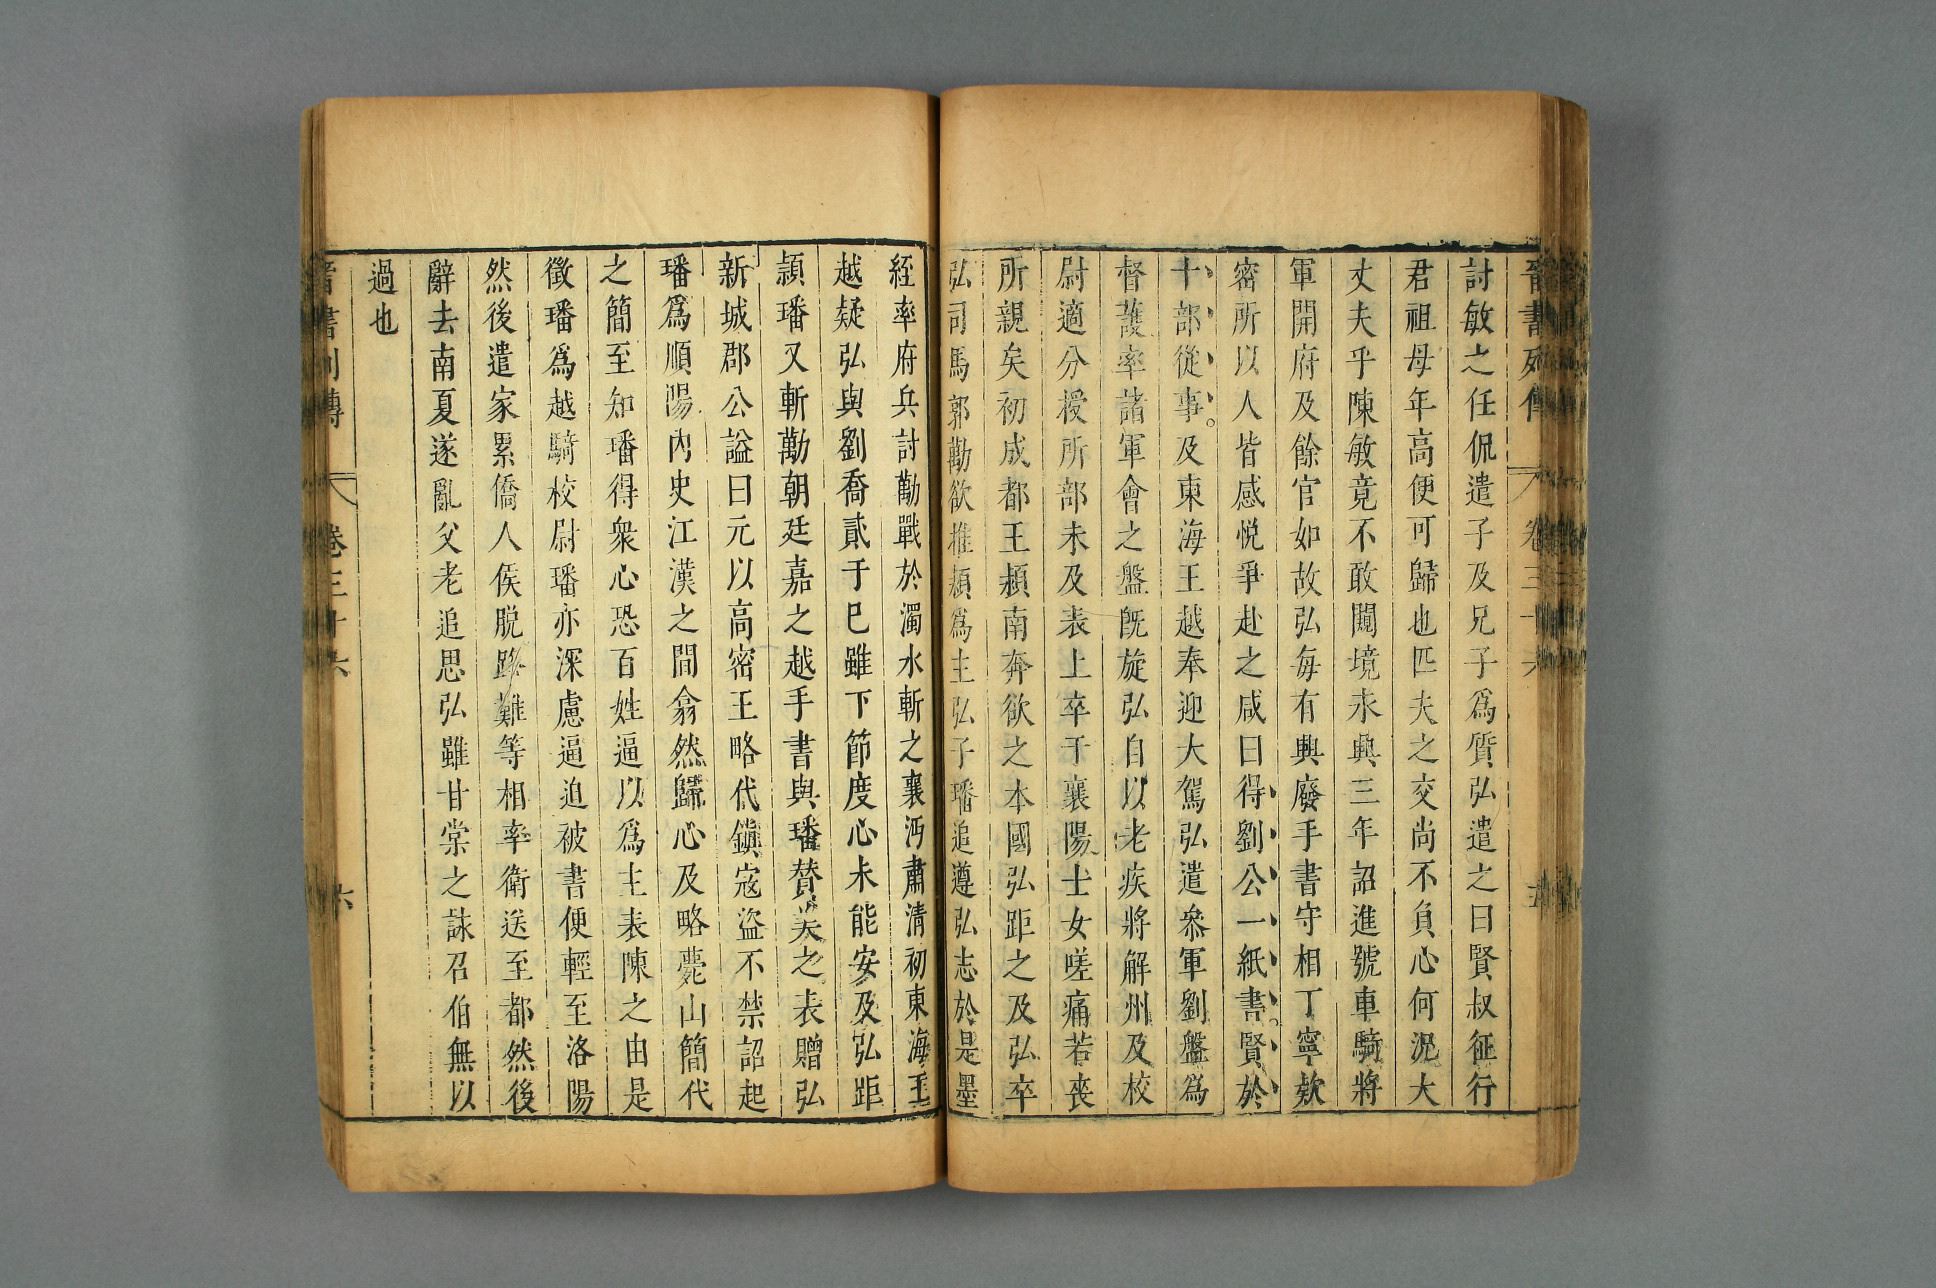 晉書列傳 卷三十六 五
討敏之任侃遣子及兄子爲質弘遣之曰賢叔征行
君祖母年高便可歸也匹夫之交尚不負心何況大
丈夫乎陳敏竟不敢闚境永興三年詔進號車騎將
軍開府及餘官如故弘每有興廢手書守相丁寧款
密所以人皆感悅爭赴之咸曰得劉公一紙書。賢於
十部從事。及東海王越奉迎大駕弘遣叅軍劉盤爲
督護率諸軍會之盤旣旋弘自以老疾將解州及校
尉適分授所部未及表上卒于襄陽士女嗟痛若喪
所親矣初成都王穎南奔欲之本國弘距之及弘卒
弘司馬郭勱欲推穎爲主弘子璠追遵弘志於是墨
絰率府兵討勱戰於濁水斬之襄沔肅清初東海王
越疑弘與劉喬貳于己雖下節度心未能安及弘距
頴璠又斬勱朝廷嘉之越手書與璠贊美之表贈弘
新城郡公謚曰元以高密王略代鎭寇盜不禁詔起
璠爲順陽內史江漢之間翕然歸心及略薨山簡代
之簡至知璠得衆心恐百姓逼以爲主表陳之由是
徵璠爲越騎校尉璠亦深慮逼迫被書便輕至洛陽
然後遣家累僑人侯脫路難等相率衛送至都然後
辭去南夏遂亂父老追思弘雖甘棠之詠召伯無以
過也
晉書列傳 卷三十六 六